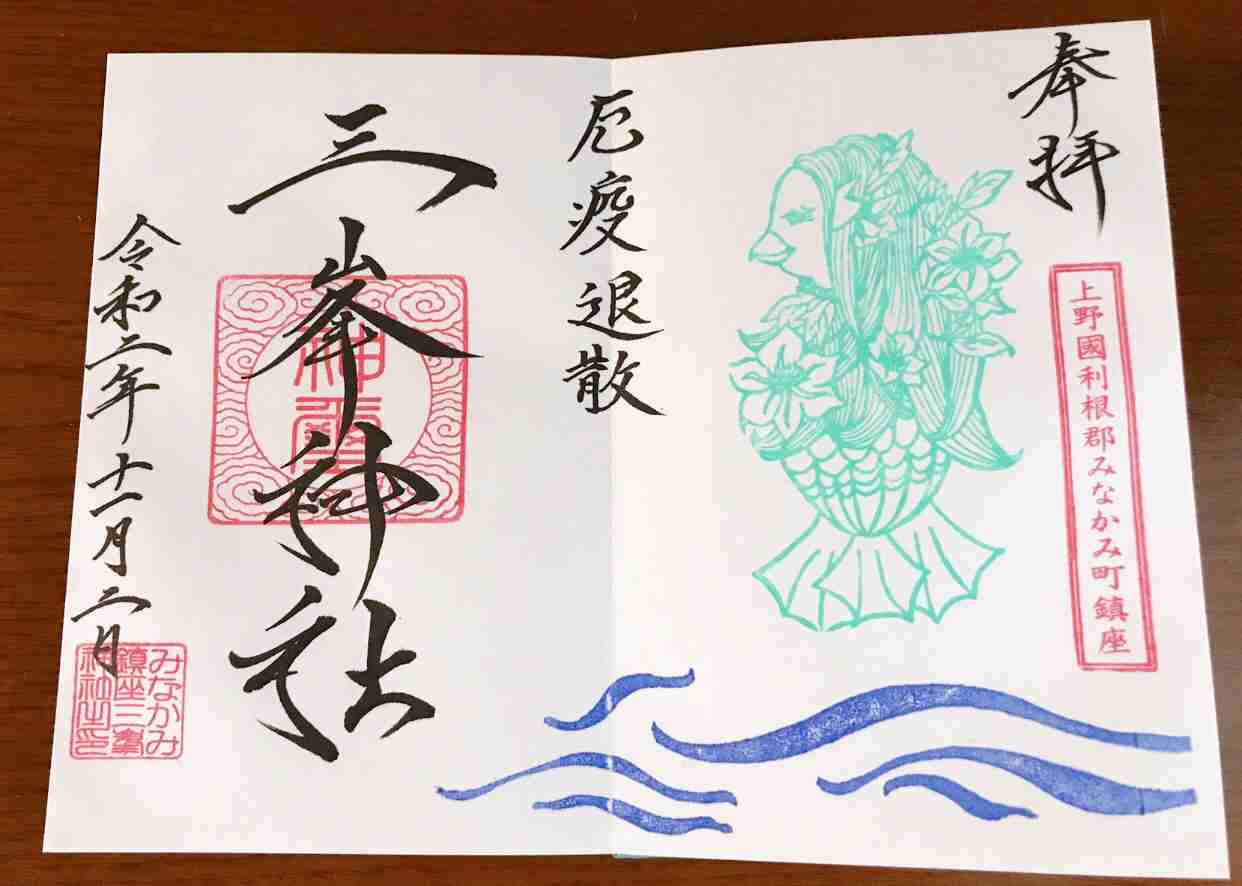 奉拝
上野國利根郡みなかみ町鎮座
厄疫退散
三峯神社
令和二年十一月二日
みなかみ
鎮座三峯
神社之印